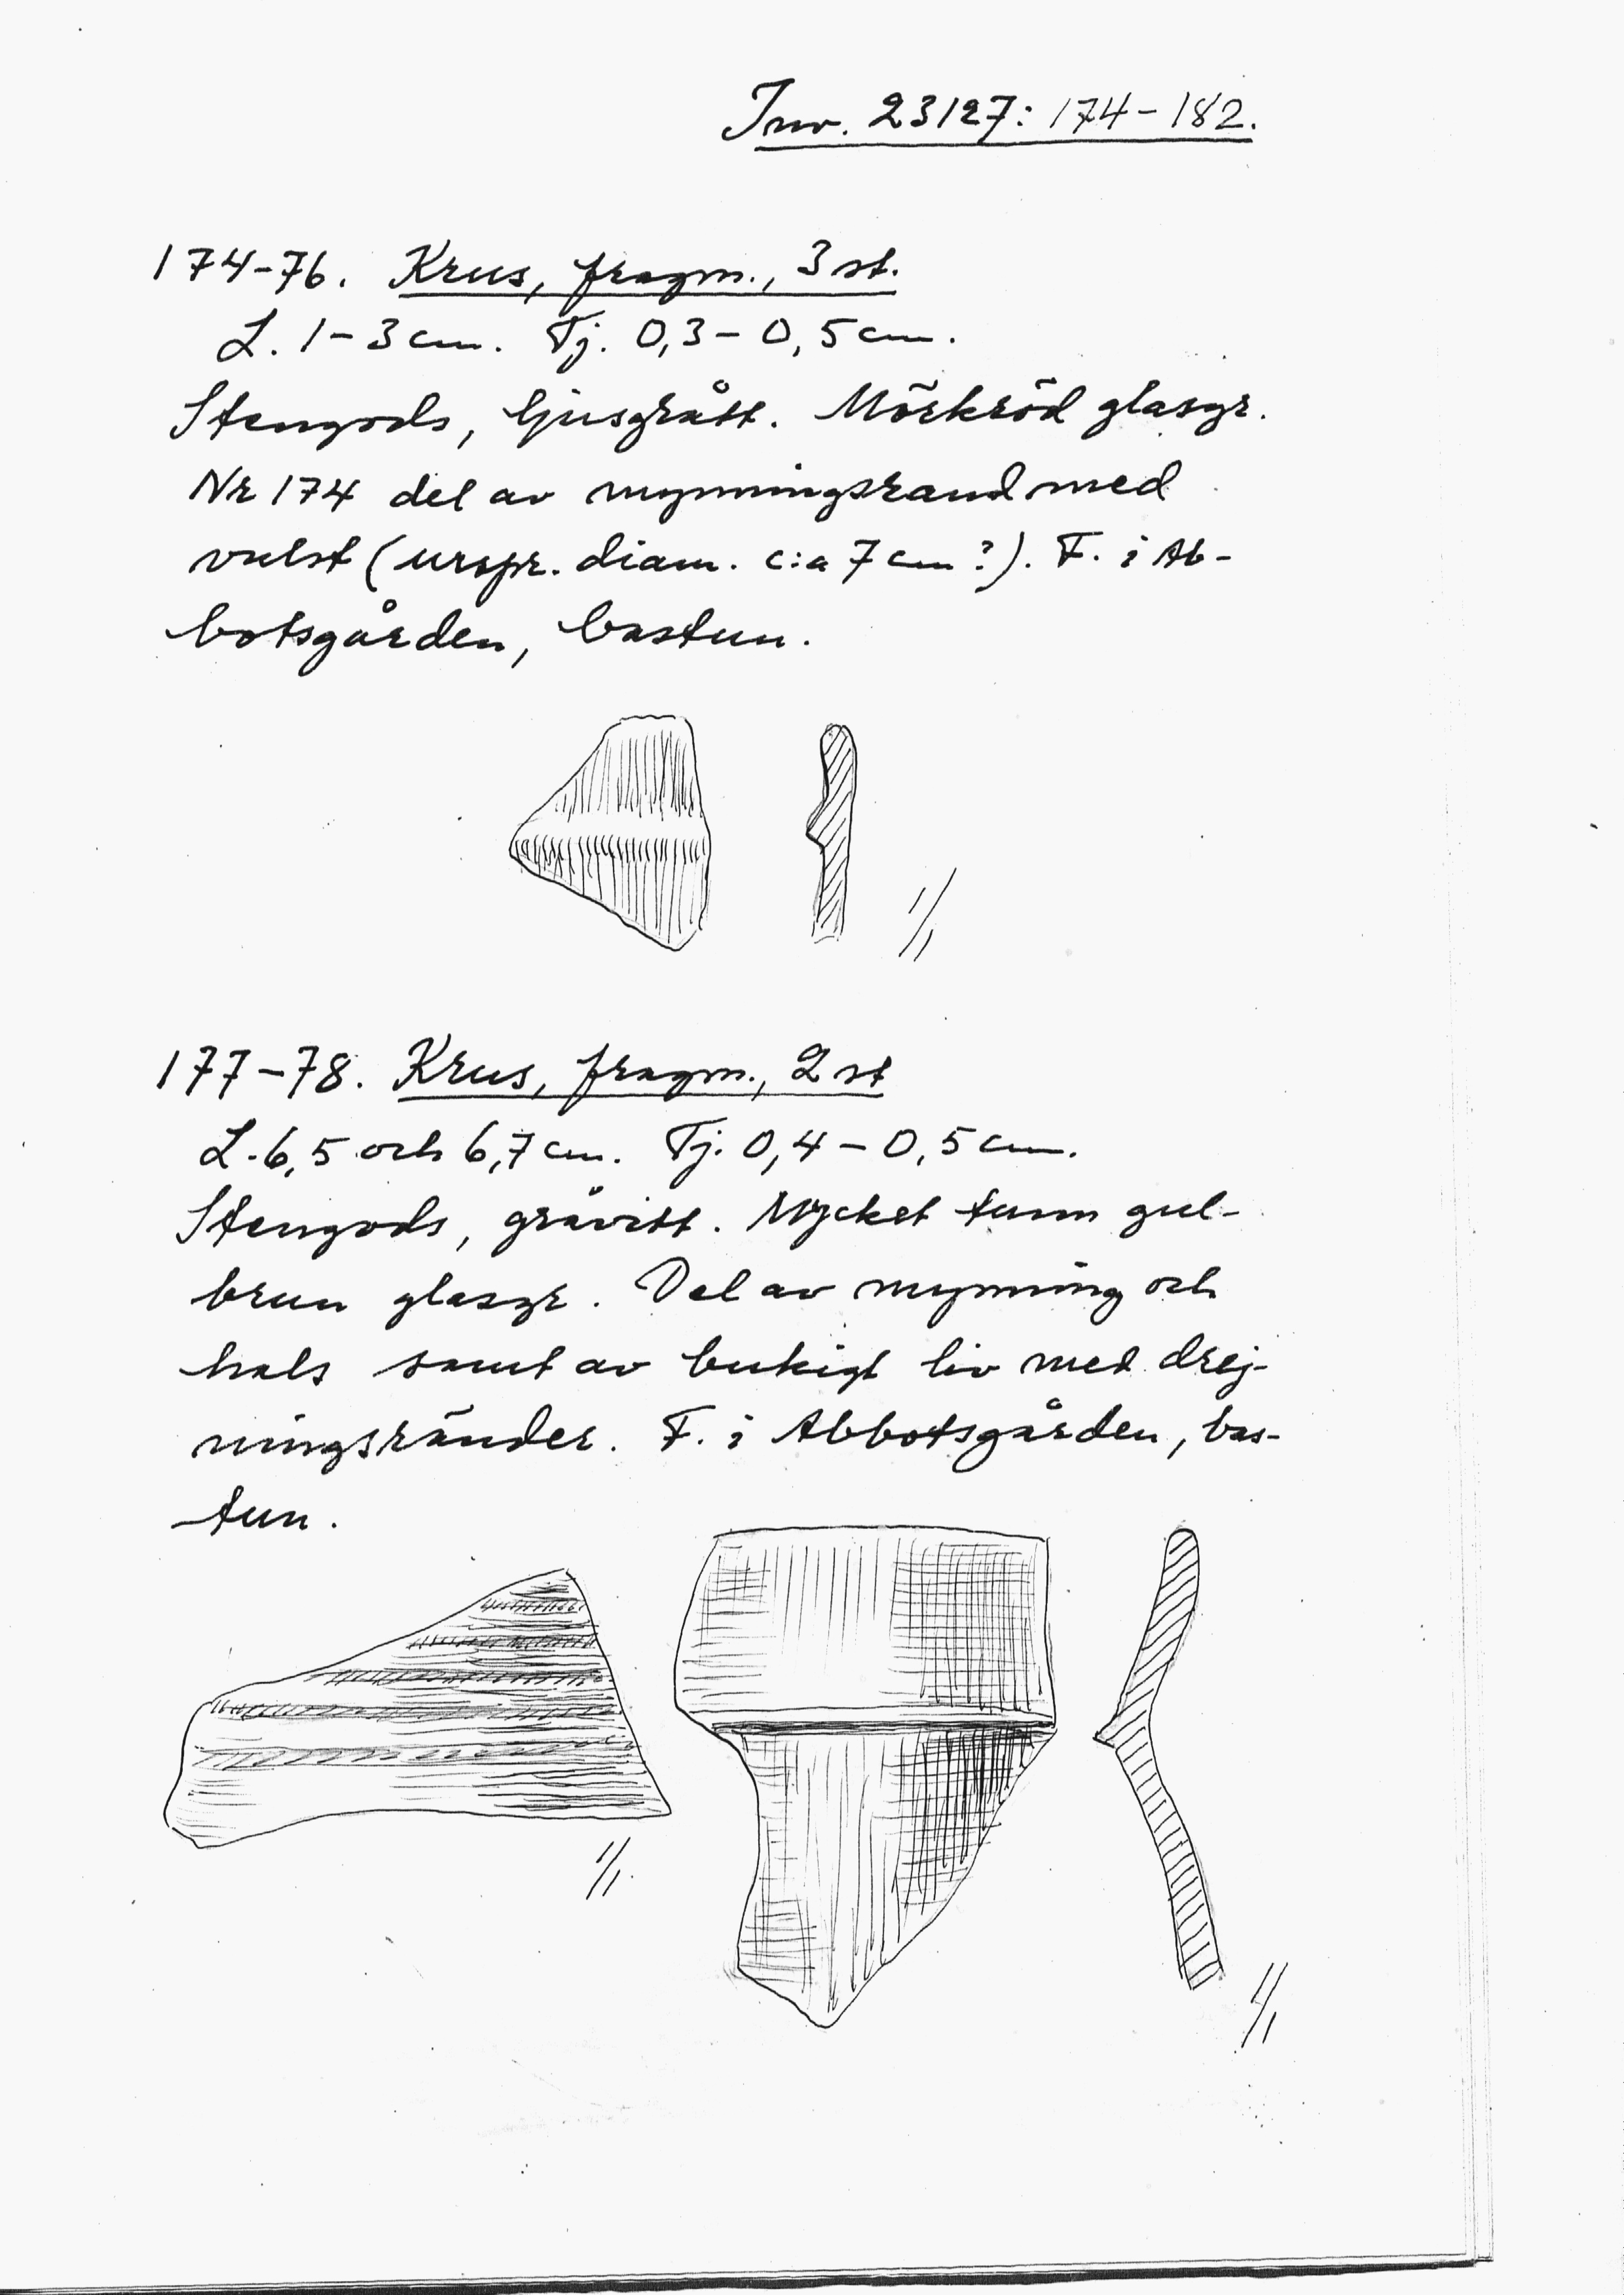 Inv. 23127: 174-182.
174-76. Krus, fragm., 3 st.
L. 1-3 cm. Tj. 0,3-0,5 cm.
Stengods, ljusgrått. Mörkröd glasyr.
Nr 174 del av mynningsrand med
vulst (urspr. diam. c:a 7 cm?). F. i Ab-
botsgården, bastun.
1/1
177-78. Krus, fragm., 2 st
L. 6,5 och 6,7 cm. Tj. 0,4-0,5 cm.
Stengods, gråvitt. Mycket tunn gul-
brun glasyr. Del av mynning och
hals samt av bukigt liv med drej-
ningsränder. F. i Abbotsgården, bas-
tun.
1/1.
1/1